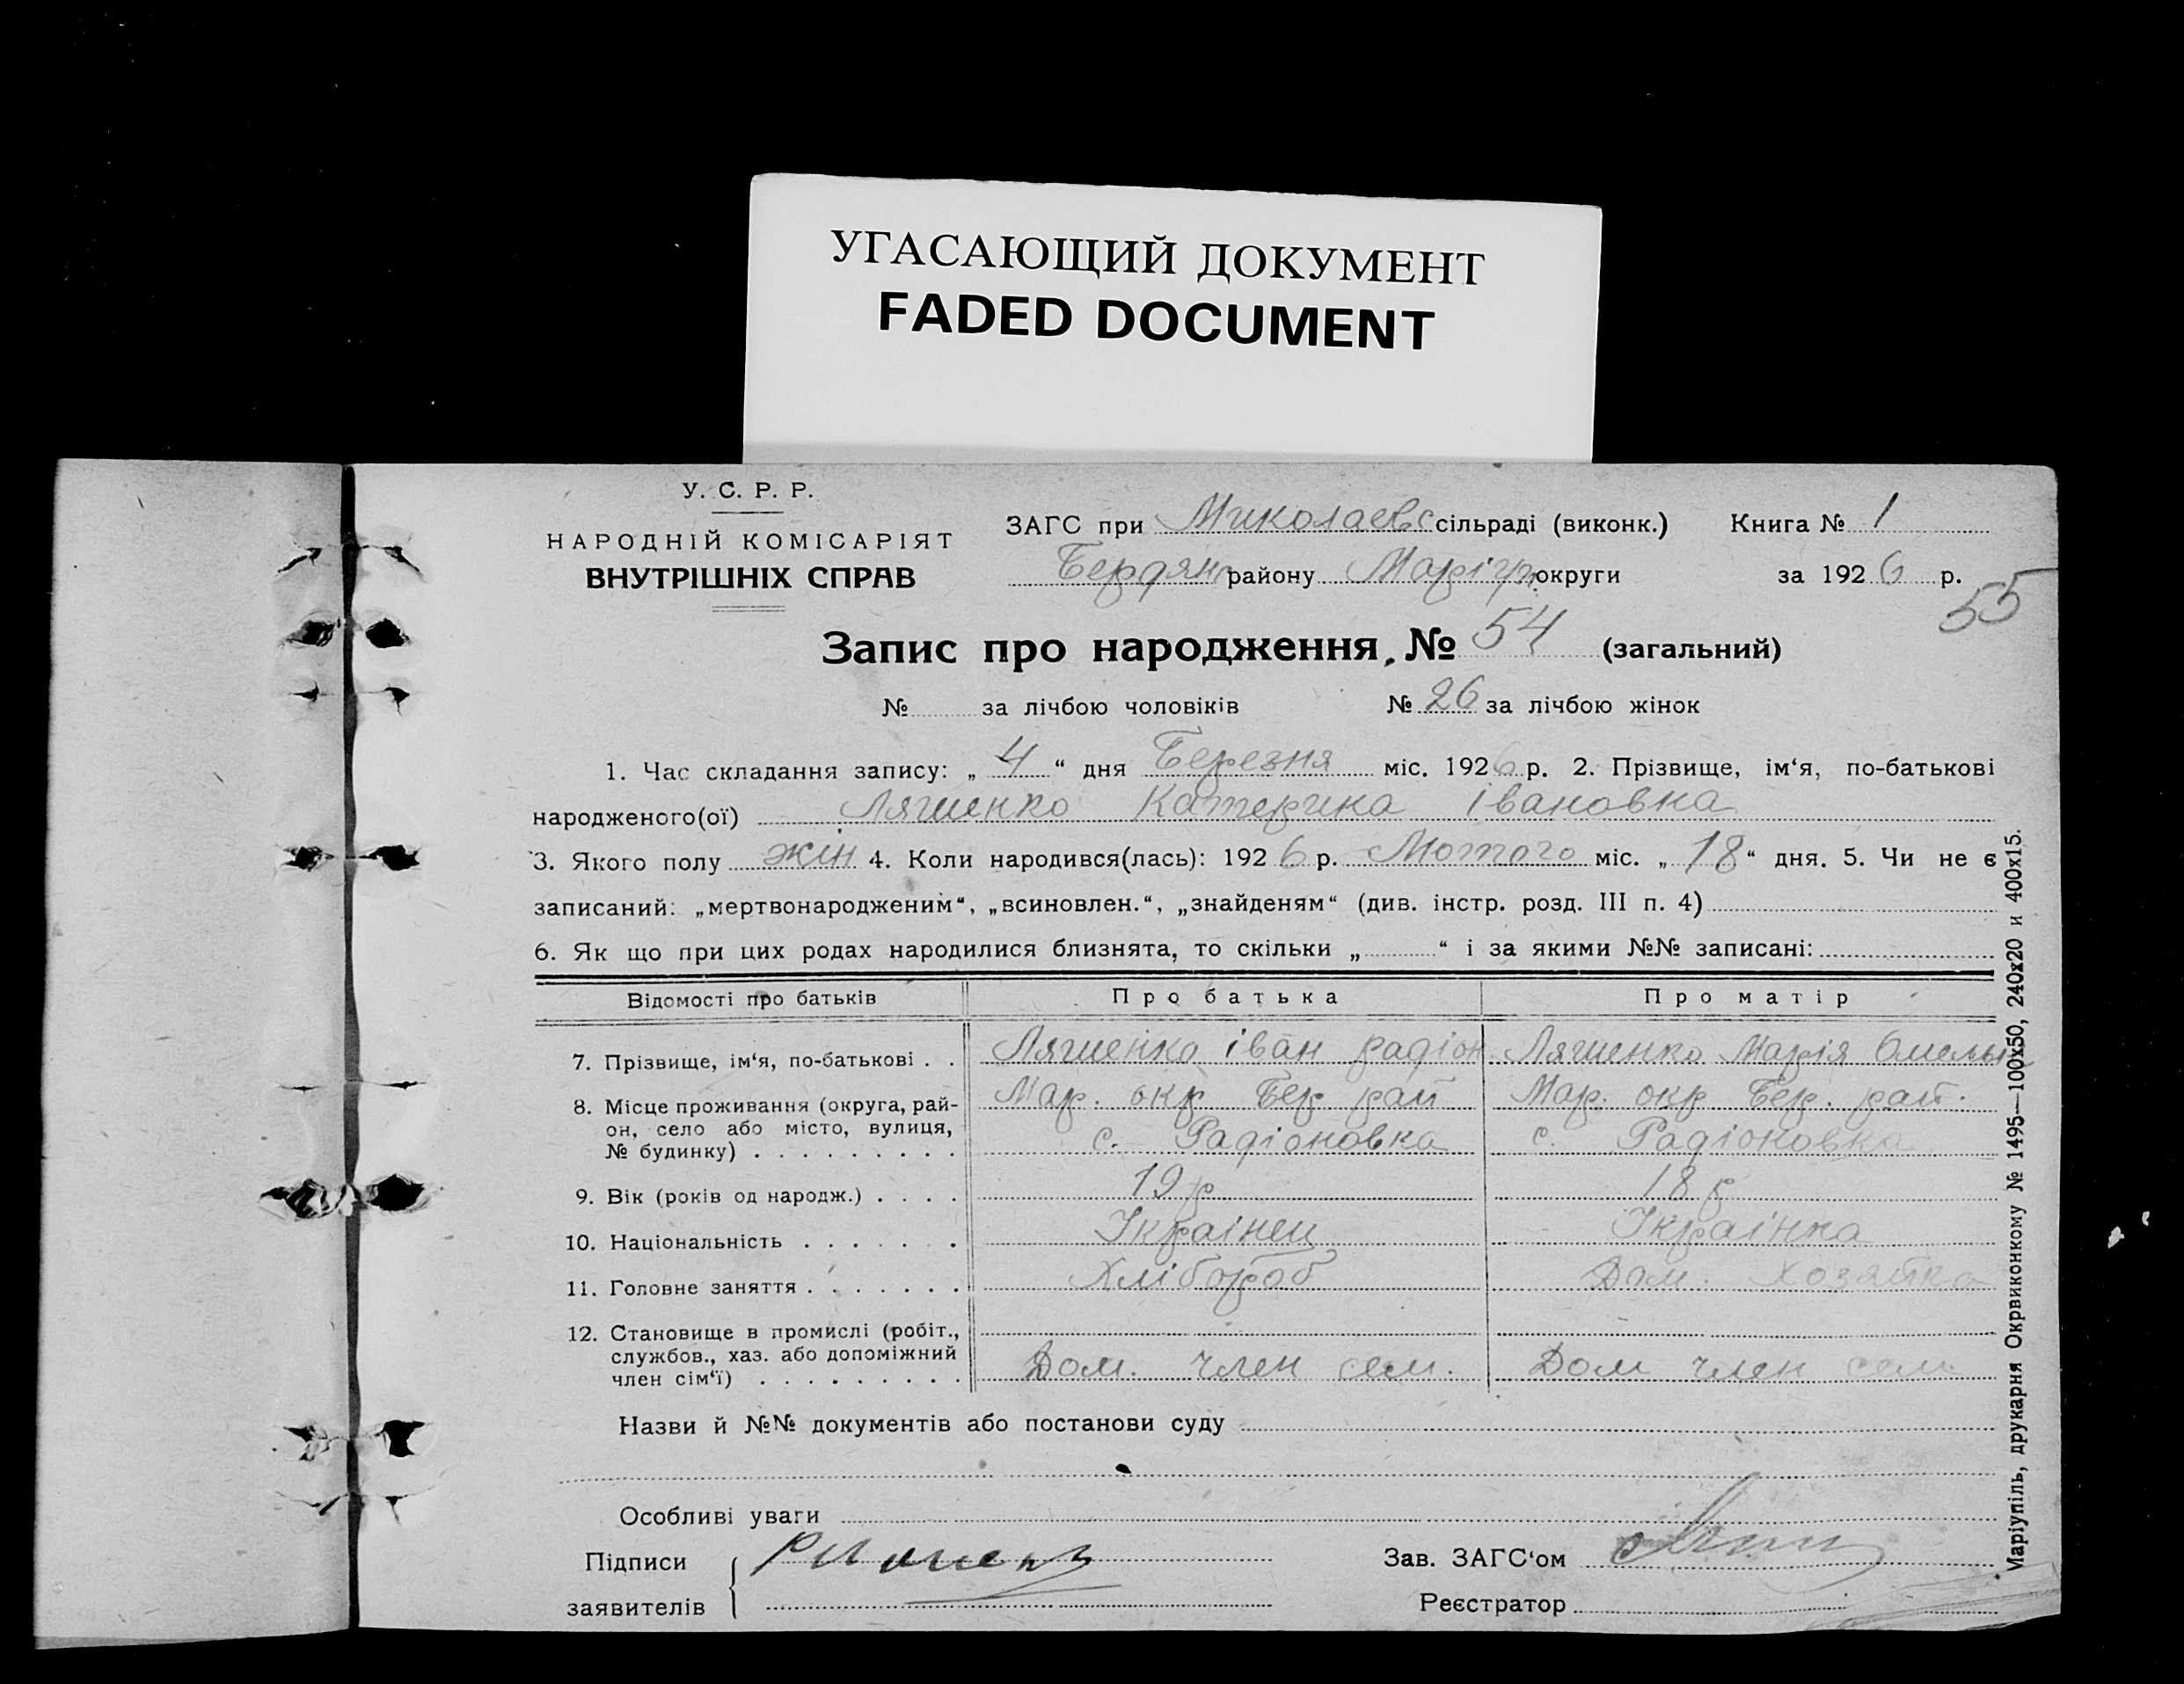 УГАСАЮЩИЙ ДОКУМЕНТ
FADED DOCUMENT
У. С. Р. Р.
НАРОДНІЙ КОМІСАРІЯТ
ВНУТРІШНІХ СПРАВ
ЗАГС при Миколаевс сільраді (виконк.) Книга № 1
Бердянс району Маріуп. округи за 1926 р.
55
Запис про народження, № 54 (загальний)
№ за лічбою чоловіків № 26 за лічбою жінок
1. Час складання запису: „ 4 “ дня Березня міс. 1926 р. 2. Прізвище, ім‘я, по-батькові
народженого(ої) Ляшенко Катерина Івановка
3. Якого полу жін 4. Коли народився(лась): 1926 р. Мотого міс. „ 18 “ дня. 5. Чи не є
записаний: „мертвонародженим“, „всиновлен.“, „знайденям“ (див. інстр. розд. III п. 4)
6. Як що при цих родах народилися близнята, то скільки „ “ і за якими №№ записані:
Відомості про батьків Про батька Про матір
7. Прізвище, ім‘я, по-батькові . . Ляшенко іван радіон Ляшенко Марія Омельн
8. Місце проживання (округа, рай- Мар. окр Бер рай Мар. окр Бер. рай.
он, село або місто, вулиця, с. Радіоновка с. Радіоновка
№ будинку) . . . . . . . . .
9. Вік (років од народж.) . . . . 19 р 18 р
10. Національність . . . . . . . Українец Українка
11. Головне заняття . . . . . . . Хлібороб Дом. Хозяйка
12. Становище в промислі (робіт.,
службов., хаз. або допоміжний Дом. член сем. Дом член сем
член сім‘ї) . . . . . . . . .
Назви й №№ документів або постанови суду
Особливі уваги
Підписи Зав. ЗАГС‘ом
заявителів Реєстратор
Маріупіль, друкарня Окрвиконкому № 1495—100х50, 240х20 и 400х15.